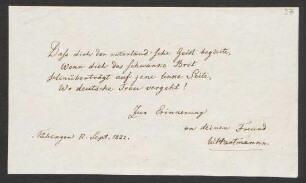 37
Daß dich der vaterländ'sche Geist begleite,
Wenn dich das schwanke Bret
hinüberträgt auf jene linke Seite,
Wo deutsche Treu vergeht!
Zur Erinnerung
an deinen Freund
Hartmann.
Sept. 1822.